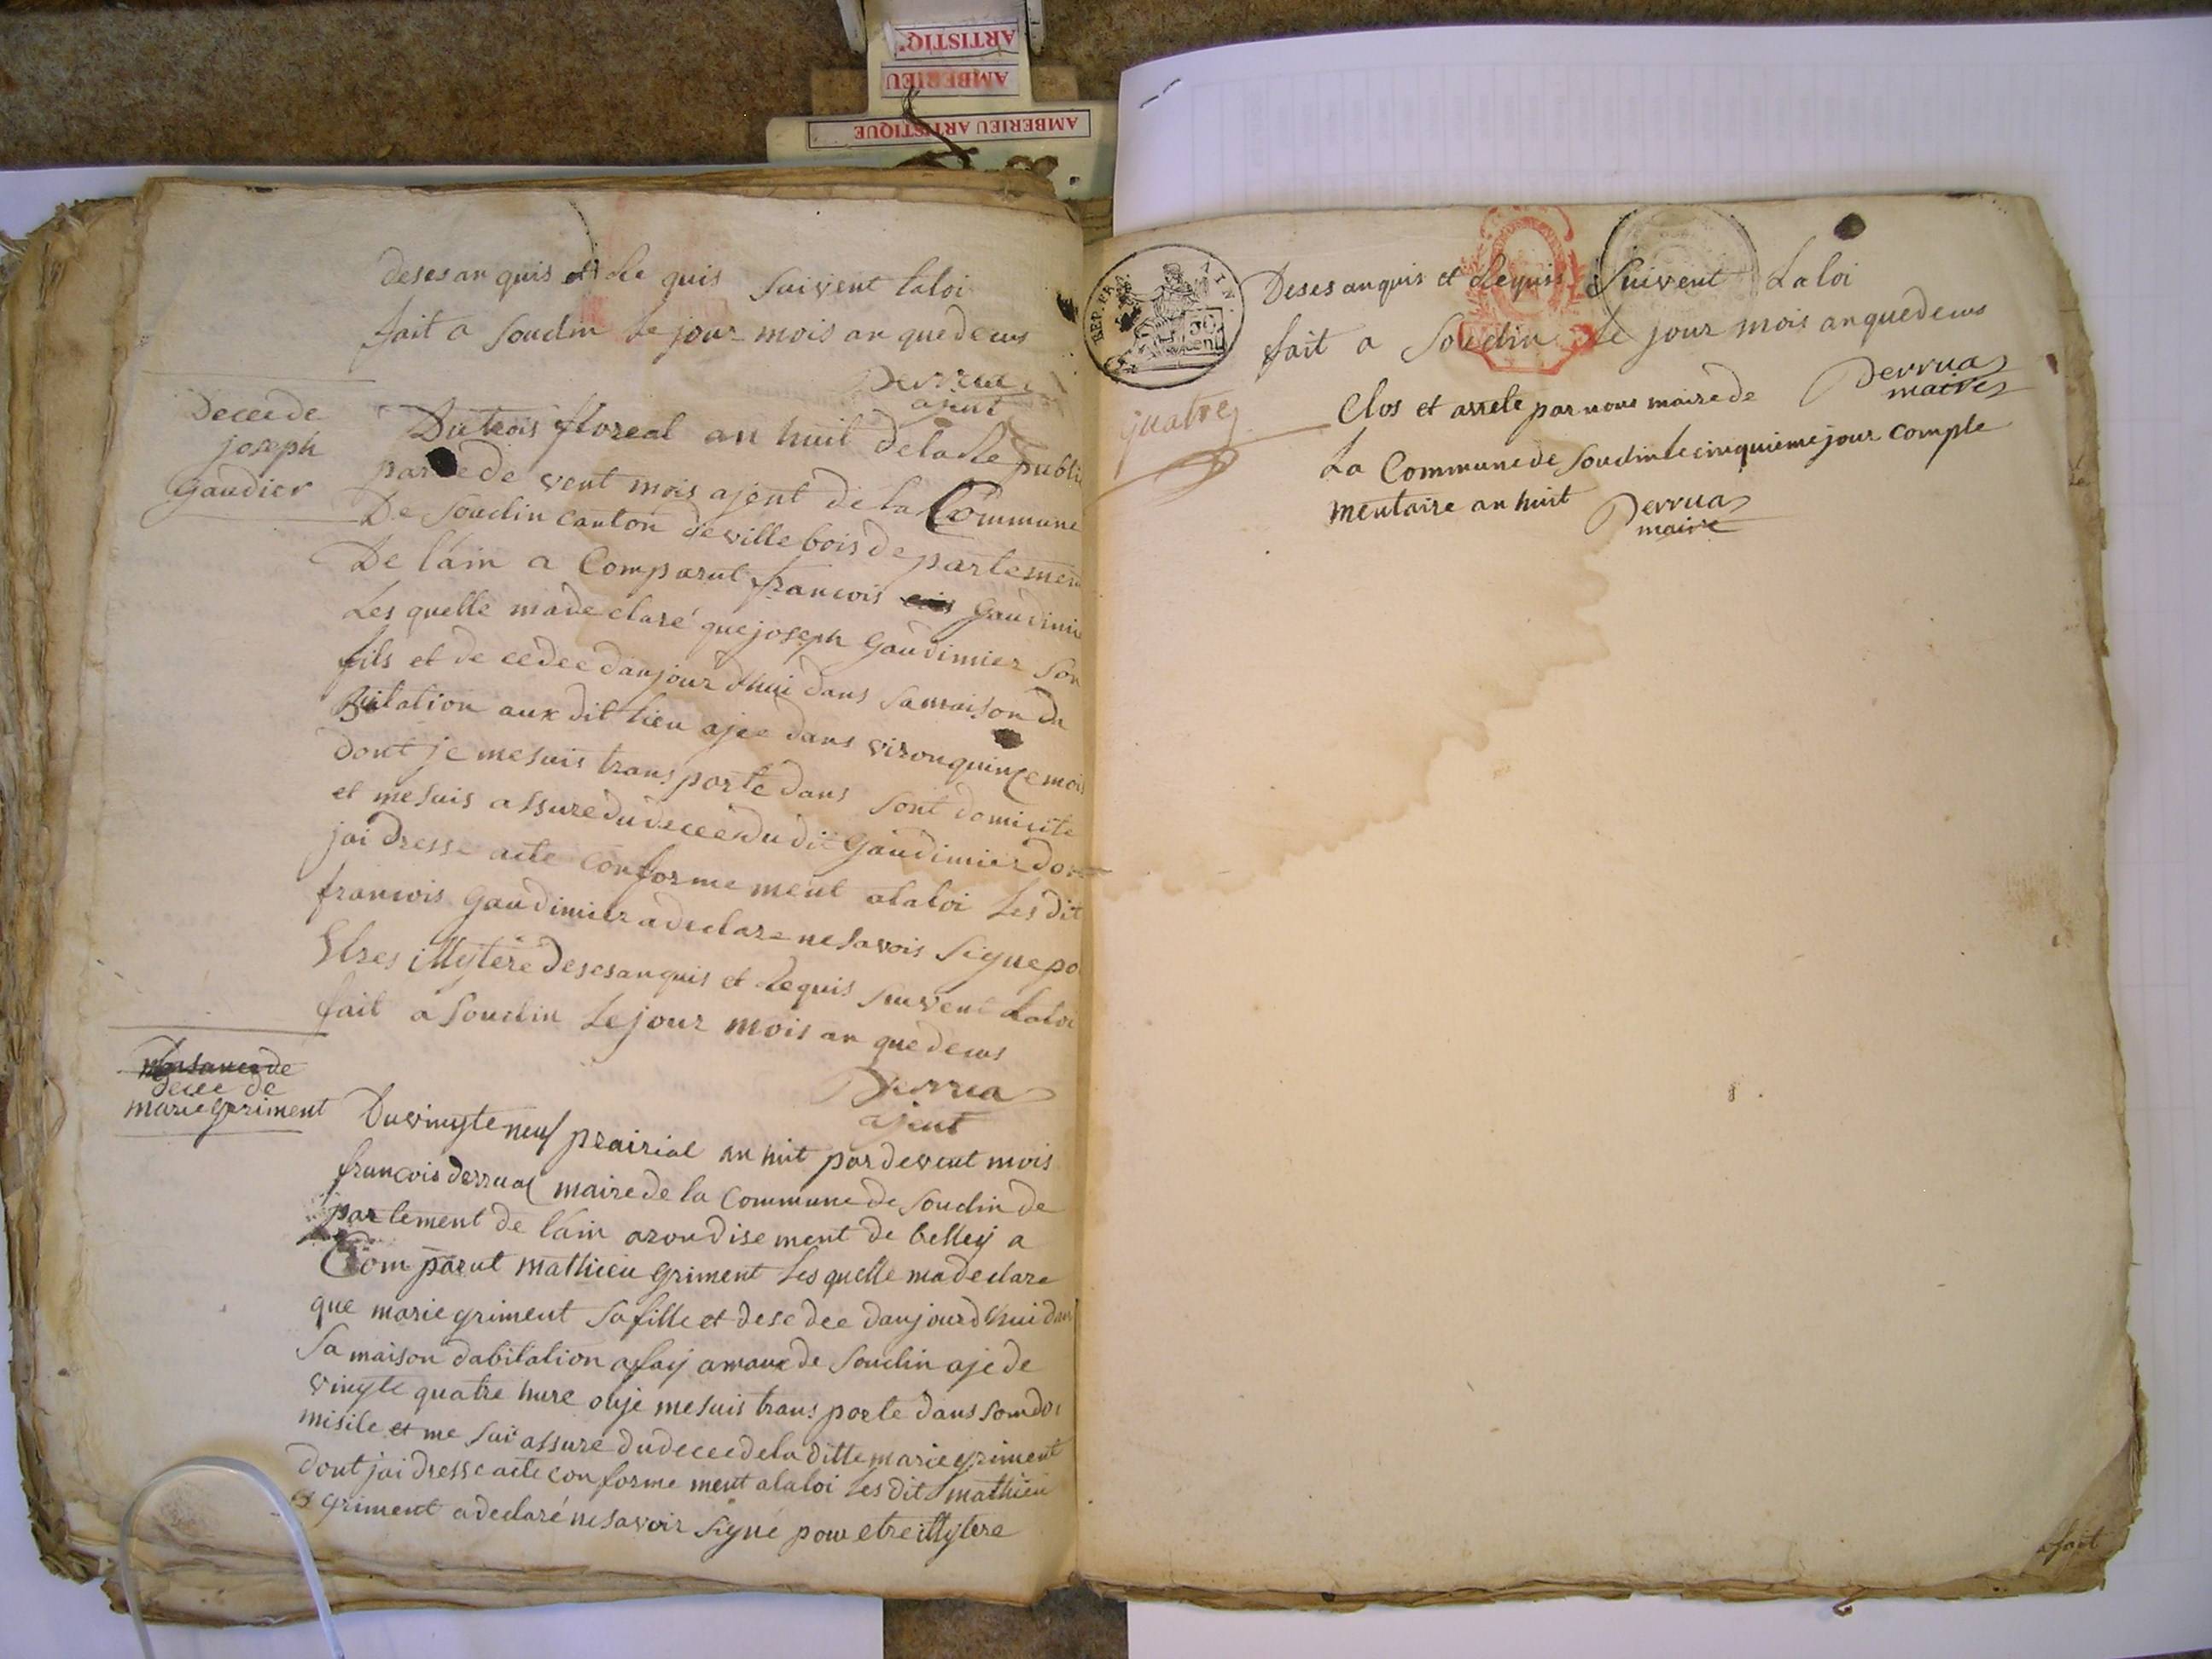 ARTISTIQ'
AMBERIEU
AMBERIEU ARTISTIQUE
desesanquis et Re quis suivent laloi
fait a soudin le jour mois an quedecus
Derrua
ajent
Decede
joseph
gaudier
Du trois floreal an huit de la Re publi
par de vent mois ajent de la Commune
De soudin canton de villebois departemen
De l'ain a Comparut francois Gaudimie
Les quelle made claré que joseph Gaudimier son
fils et de cedee daujour dhui dans samaison da
bitation aux dit lieu ajee dans vironquinze mois
dont je mesuis trans porte dans sont domicile
et mesuis assuredudeceedudit Gaudimier don
jai dresse acte conformement alaloi Les dit
francois Gaudimier adeclare nesavois signe po
Etres illytere desesanquis et Requis suivent Laloi
fait a soudin Lejour mois an quedecus
Derrua
ajent
naisance de
decee de
marie griment
Duvingteneuf prairial an huit pardevent mois
francois derrua maire de la Commune de soudin de
partement de l'ain arondisement de belley a
Comparut mathieu griment Lesquelle madeclare
que marie griment safille et desedee daujourdhui dans
Sa maison dabitation afay amaux de soudin aje de
vingte quatre hure ouje mesuis trans porte dans somdo
misile et me sui assure dudeceedela ditte marie griment
dont jai dresse acte conforme ment alaloi Les dit mathieu
griment adeclaré nesavoir signé pour etreillytere
REP. FRA.
AIN.
50
cent
quatre
Desesanquis et Requis suivent Laloi
fait a Soudin le jour mois anquedecus
Derrua
maire
Clos et arrete par nous maire de
La Commune de soudin le cinquieme jour comple
mentaire an huit
Derrua
maire
fait